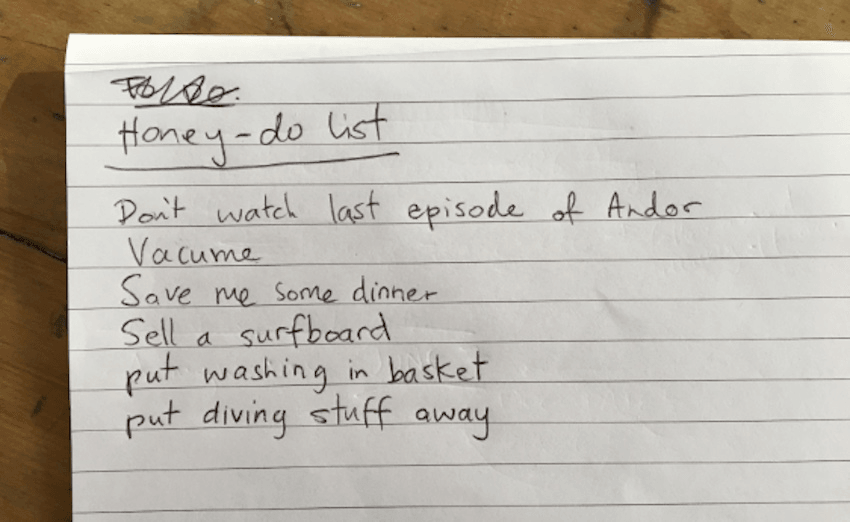 Honey-do list
Don't watch last episode of Andor
Vacume
Save me some dinner
Sell a surfboard
put washing in basket
put diving stuff away